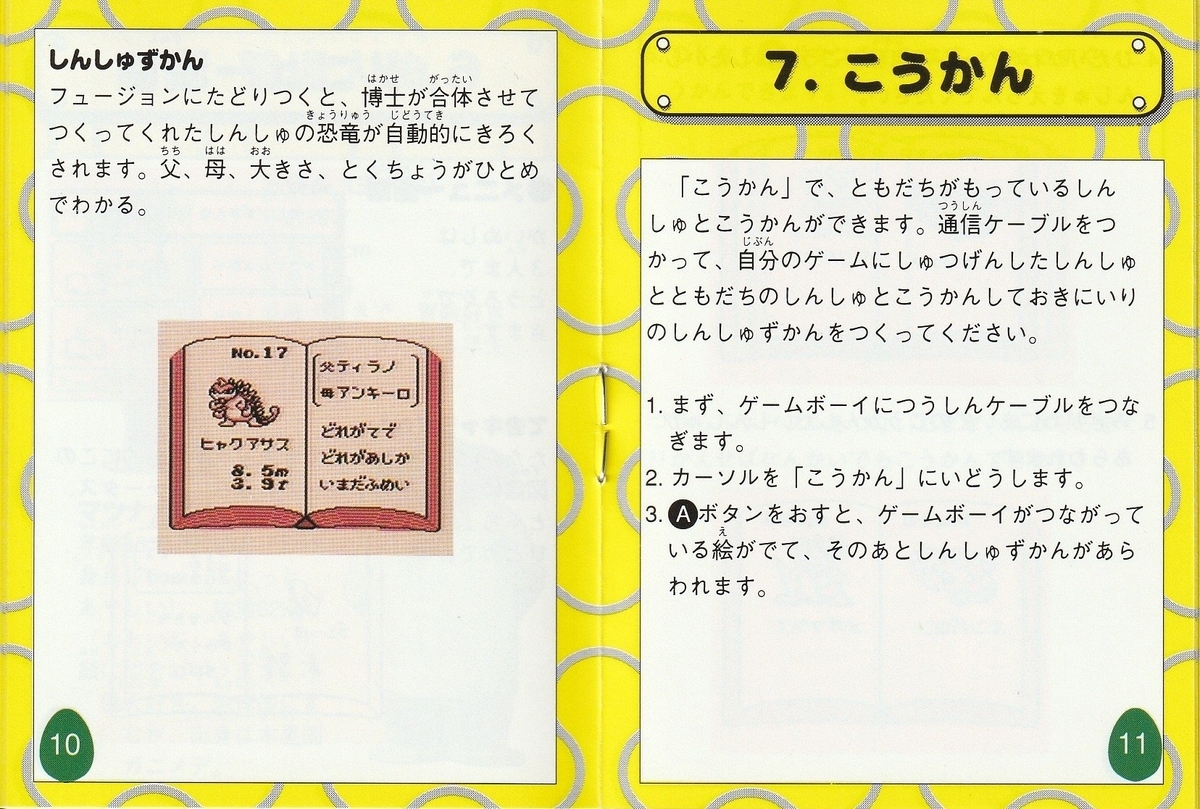 しんしゅずかん
フュージョンにたどりつくと、博士が合体させて
つくってくれたしんしゅの恐竜が自動的にきろく
されます。父、母、大きさ、とくちょうがひとめ
でわかる。
No.17
ヒャクアサス
8.5m
3.9t
父ティラノ
母アンキーロ
どれがてで
どれがあしか
いまだふめい
10
7. こうかん
「こうかん」で、ともだちがもっているしん
しゅとこうかんができます。通信ケーブルをつ
かって、自分のゲームにしゅつげんしたしんしゅ
とともだちのしんしゅとこうかんしておきにいり
のしんしゅずかんをつくってください。
1. まず、ゲームボーイにつうしんケーブルをつな
ぎます。
2. カーソルを「こうかん」にいどうします。
3. Aボタンをおすと、ゲームボーイがつながって
いる絵がでて、そのあとしんしゅずかんがあら
われます。
11